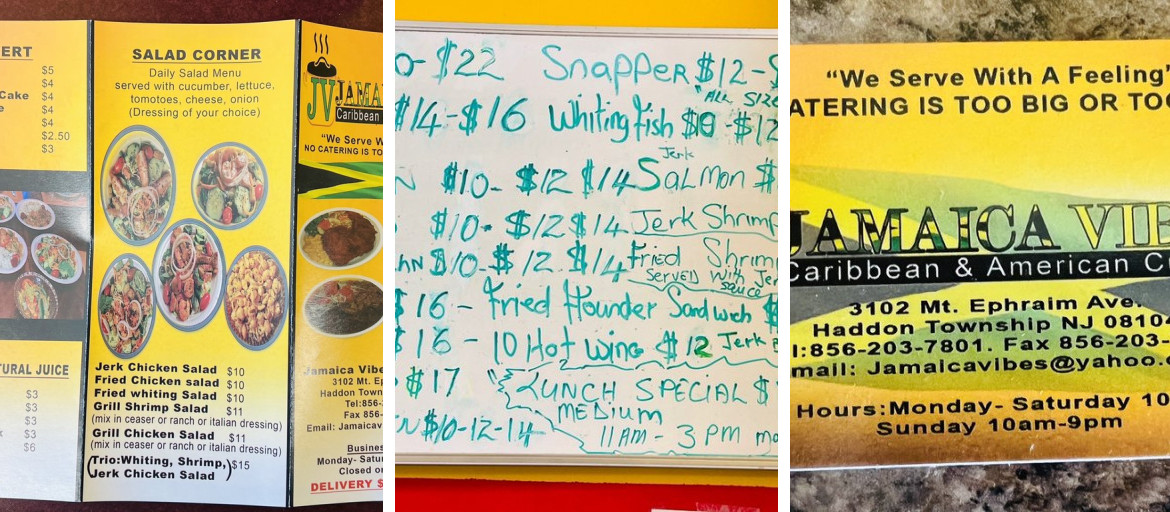 ERT
$5
$4
Cake $4
e $4
$4
$2.50
$3
TURAL JUICE
$3
$3
$3
$3
$6
SALAD CORNER
Daily Salad Menu
served with cucumber, lettuce,
tomotoes, cheese, onion
(Dressing of your choice)
Jerk Chicken Salad $10
Fried Chicken salad $10
Fried whiting Salad $10
Grill Shrimp Salad $11
(mix in ceaser or ranch or italian dressing)
Grill Chicken Salad $11
(mix in ceaser or ranch or italian dressing)
(Trio:Whiting, Shrimp,
Jerk Chicken Salad) $15
JV JAMA
Caribbean
"We Serve W
NO CATERING IS TO
Jamaica Vibe
3102 Mt. Ep
Haddon Town
Tel:856-
Fax 856-
Email: Jamaicav
Busines
Monday- Satur
Closed o
DELIVERY $
0-$22 Snapper $12-$
ALL SIZE
$14-$16 Whiting fish $10 $12
Jerk
N $10- $12 $14 Salmon $
$10- $12 $14 Jerk Shrimp
HN $10-$12.$14 Fried Shrim
SERVED with Jer
sauce
$16 - Fried flounder Sandwich $
$16 - 10 Hot wing $12 Jerk
$17 LUNCH SPECIAL $
MEDIUM
N $10-12-14 11AM - 3PM mo
"We Serve With A Feeling"
ATERING IS TOO BIG OR TOO
JAMAICA VIB
Caribbean & American C
3102 Mt. Ephraim Ave.
Haddon Township NJ 0810
l:856-203-7801. Fax 856-203-
mail: Jamaicavibes@yahoo.
Hours:Monday- Saturday 10
Sunday 10am-9pm